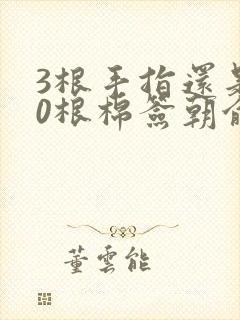 3根手指還是
0根棉簽朝前
董雲能